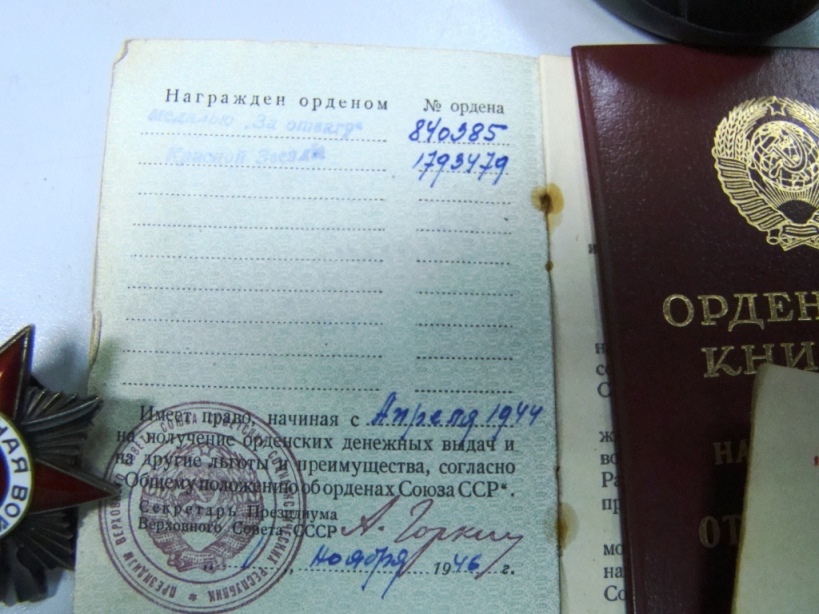 Награжден орденом № ордена
медалью „За отвагу“ 840385
Красной Звезды 1793479
Имеет право, начиная с Апреля 1944
на получение орденских денежных выдач и
на другие льготы и преимущества, согласно
„Общему положению об орденах Союза ССР“.
Секретарь Президиума
Верховного Совета СССР А. Горкин
ноября 1946 г.
ПРЕЗИДИУМ ВЕРХОВНОГО СОВЕТА СОЮЗА СОВЕТСКИХ СОЦИАЛИСТИЧЕСКИХ РЕСПУБЛИК
ОРДЕН
КНИ
НА
ОТ
НАЯ ВОЙ